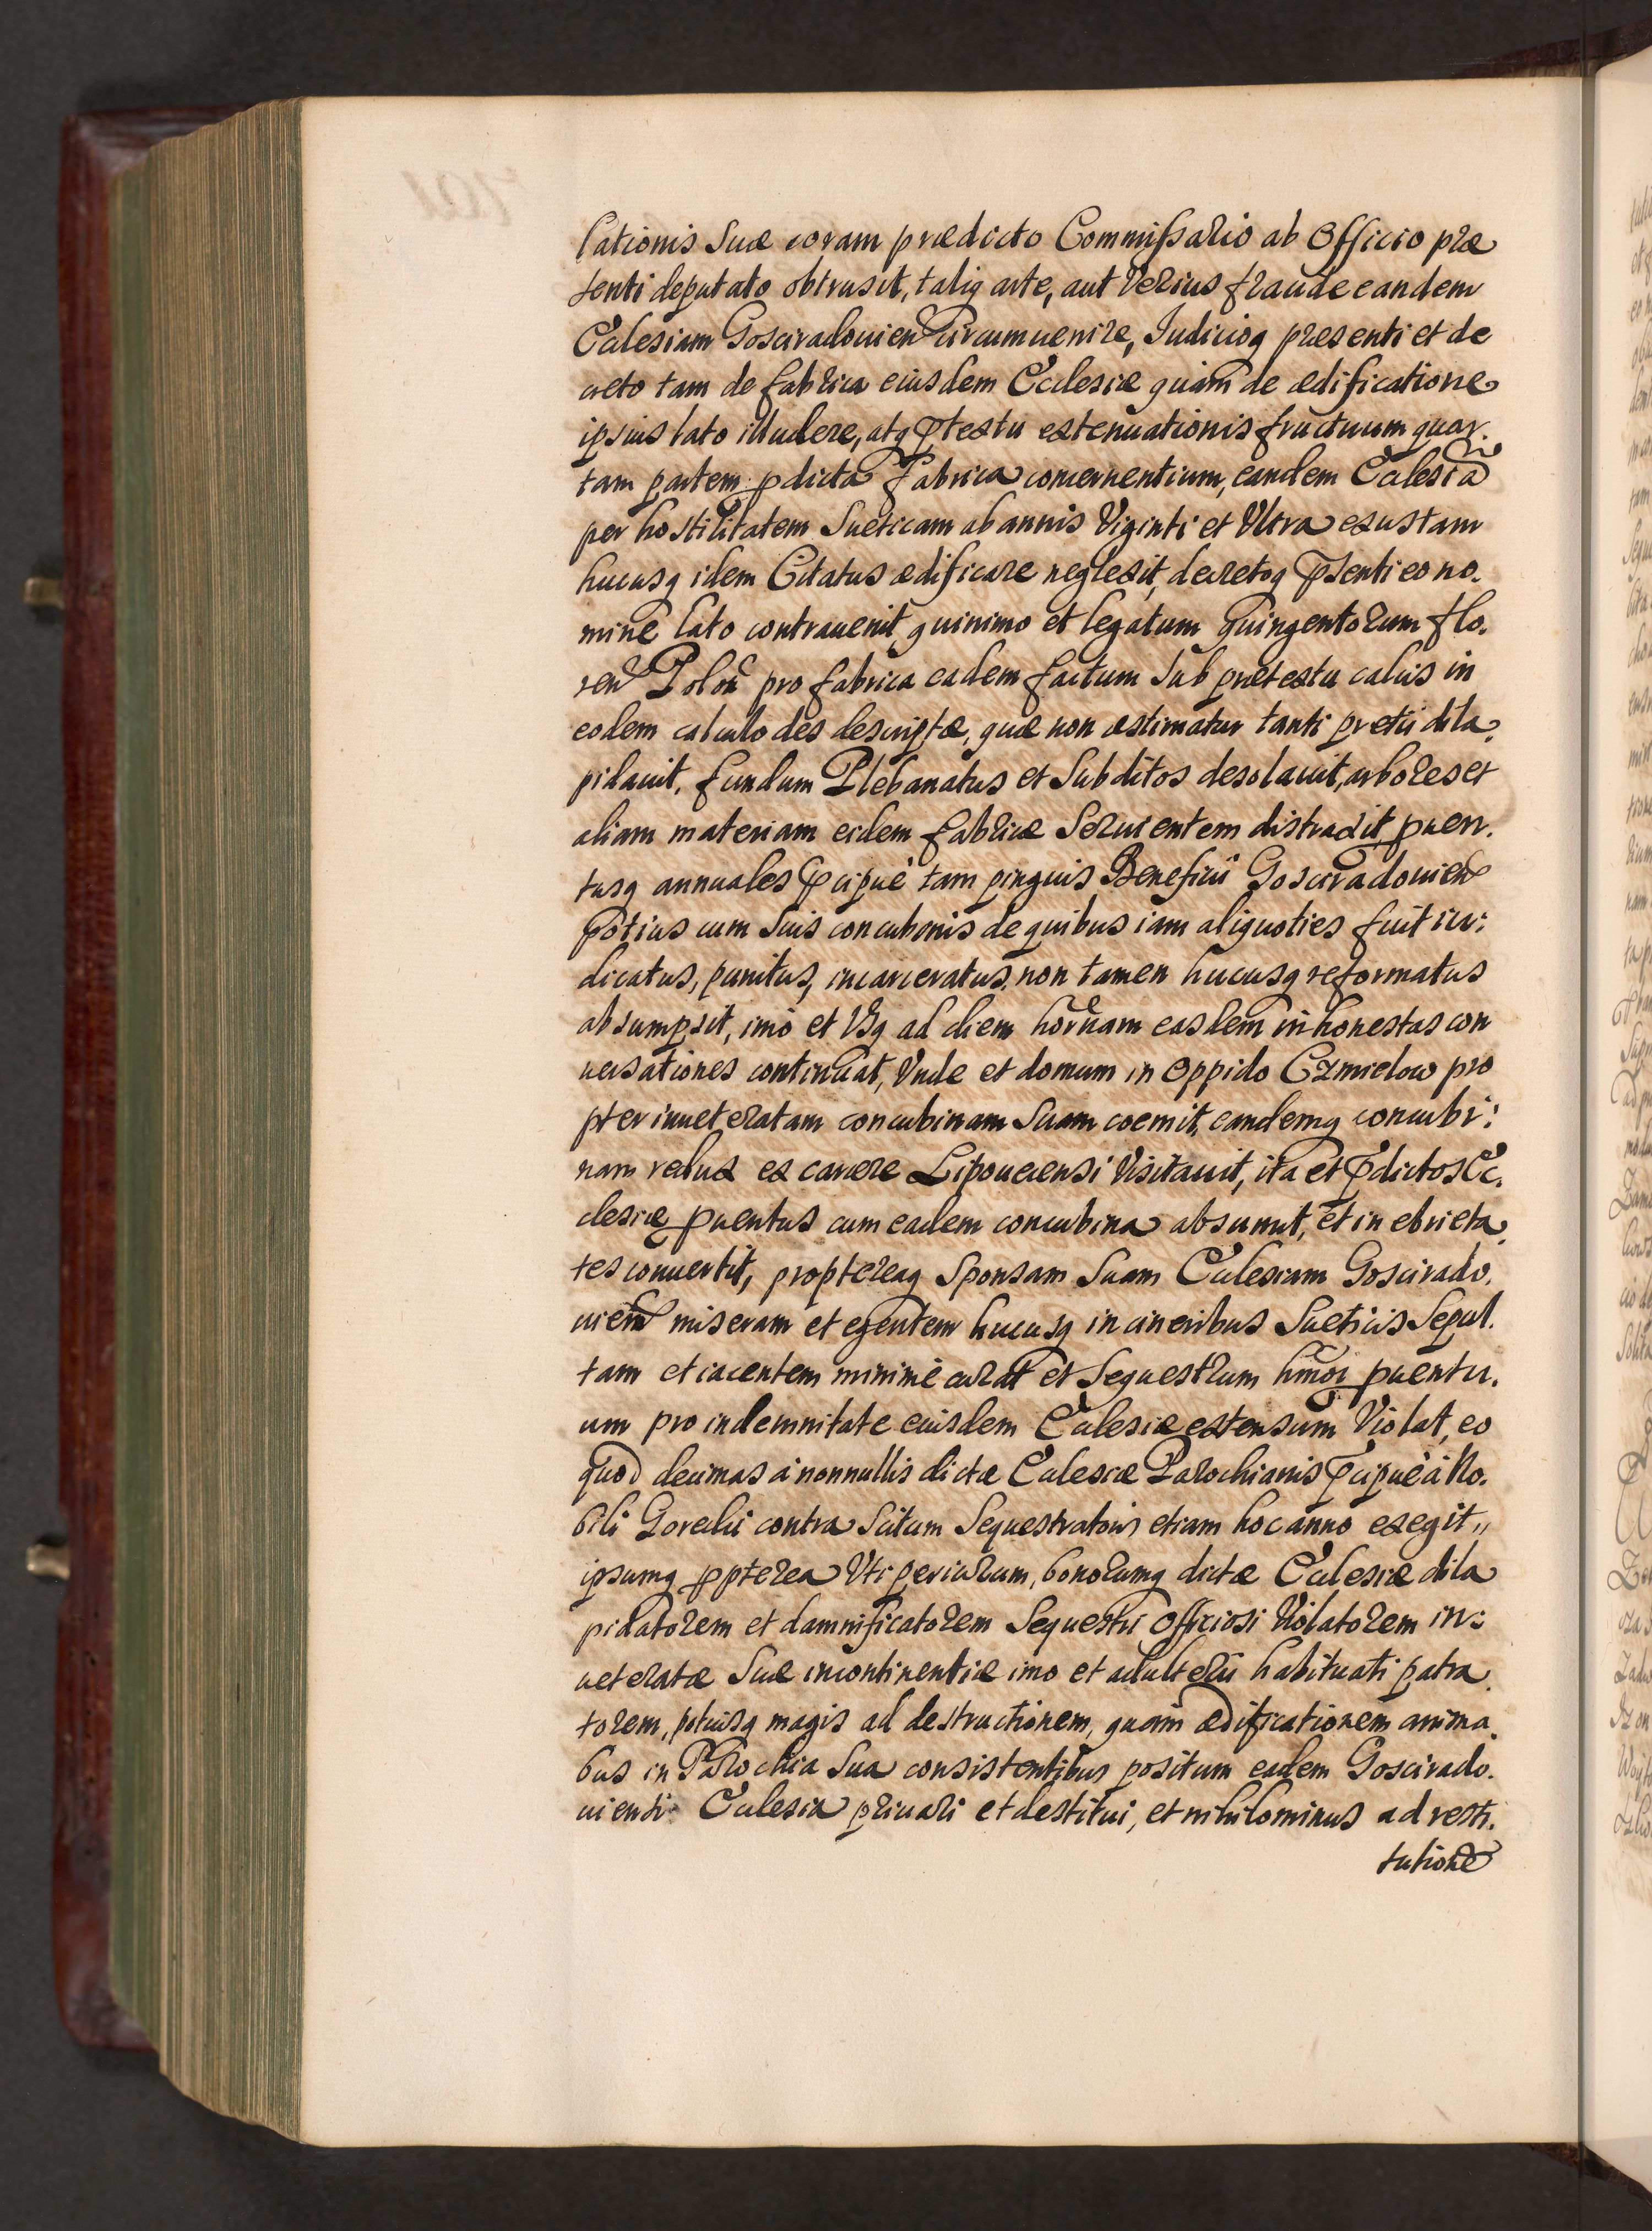 lationis suæ coram prædicto Commissario ab Officio præ
senti deputato obtrusit, taliq arte, aut Verius fraude eandem
Ecclesiam Gosciradouien circumuenire, Iudicioq præsenti et de
creto tam de fabrica eiusdem Ecclesiæ quàm de ædificatione
ipsius lato illudere, atq ptextu extenuationis fructuum quar.
tam partem pdicta fabrica concernentium, eandem Ecclesiã
per hostilitatem Sueticam ab annis Viginti et Vltra exustam
hucusq idem Citatus ædificare neglexit, decretoq psenti eo no.
mine lato contrauenit, quinimo et legatum quingentorum flo.
ren Polon pro fabrica eadem factum sub prætextu calcis in
eodem calculo des descriptæ, quæ non æstimatur tanti pretii dila.
pidauit, fundum Plebanatus et Subditos desolauit, arbores et
aliam materiam eidem fabricæ Seruientem distraxit, puen.
tusq annuales pcipuè tam pinguis Beneficii Gosciradouien
potius cum suis concubinis de quibus iam aliquoties fuit iu:
dicatus, punitus, incarceratus, non tamen hucusq reformatus
absumpsit, imò et Vsq ad diem hornam easdem inhonestas con
uersationes continuat, Vnde et domum in Oppido Czmielow pro
pter inueteratam concubinam suam coemit, eandemq concubi:
nam redux ex carcere Lipouecensi Visitauit, ita et pdictos Ec.
clesiæ puentus cum eadem concubina absumit, et in ebrieta.
tes conuertit, proptereaq Sponsam suam Ecclesiam Goscirado.
uien miseram et egentem hucusq in cineribus Sueticis Sepul.
tam et iacentem minimè curat et Sequestrum hmoi puentu.
um pro indemnitate eiusdem Ecclesiæ extensum Violat, eo
quod decimas à nonnullis dictæ Ecclesiæ Parochianis pcipuè à No.
bili Gorecki contra Scitum Sequestratoris etiam hoc anno exegit,,
ipsumq ppterea Vti periurum, bonorumq dictæ Ecclesiæ dila
pidatorem et damnificatorem Sequestri officiosi Violatorem in:
ueteratæ suæ incontinentiæ imo et adulterii habituati patra.
torem, potiusq magis ad destructionem, quàm ædificationem anima.
bus in Parochia sua consistentibus positum eadem Goscirado.
uiensi Ecclesia priuari et destitui, et nihilominus ad resti.
tutione